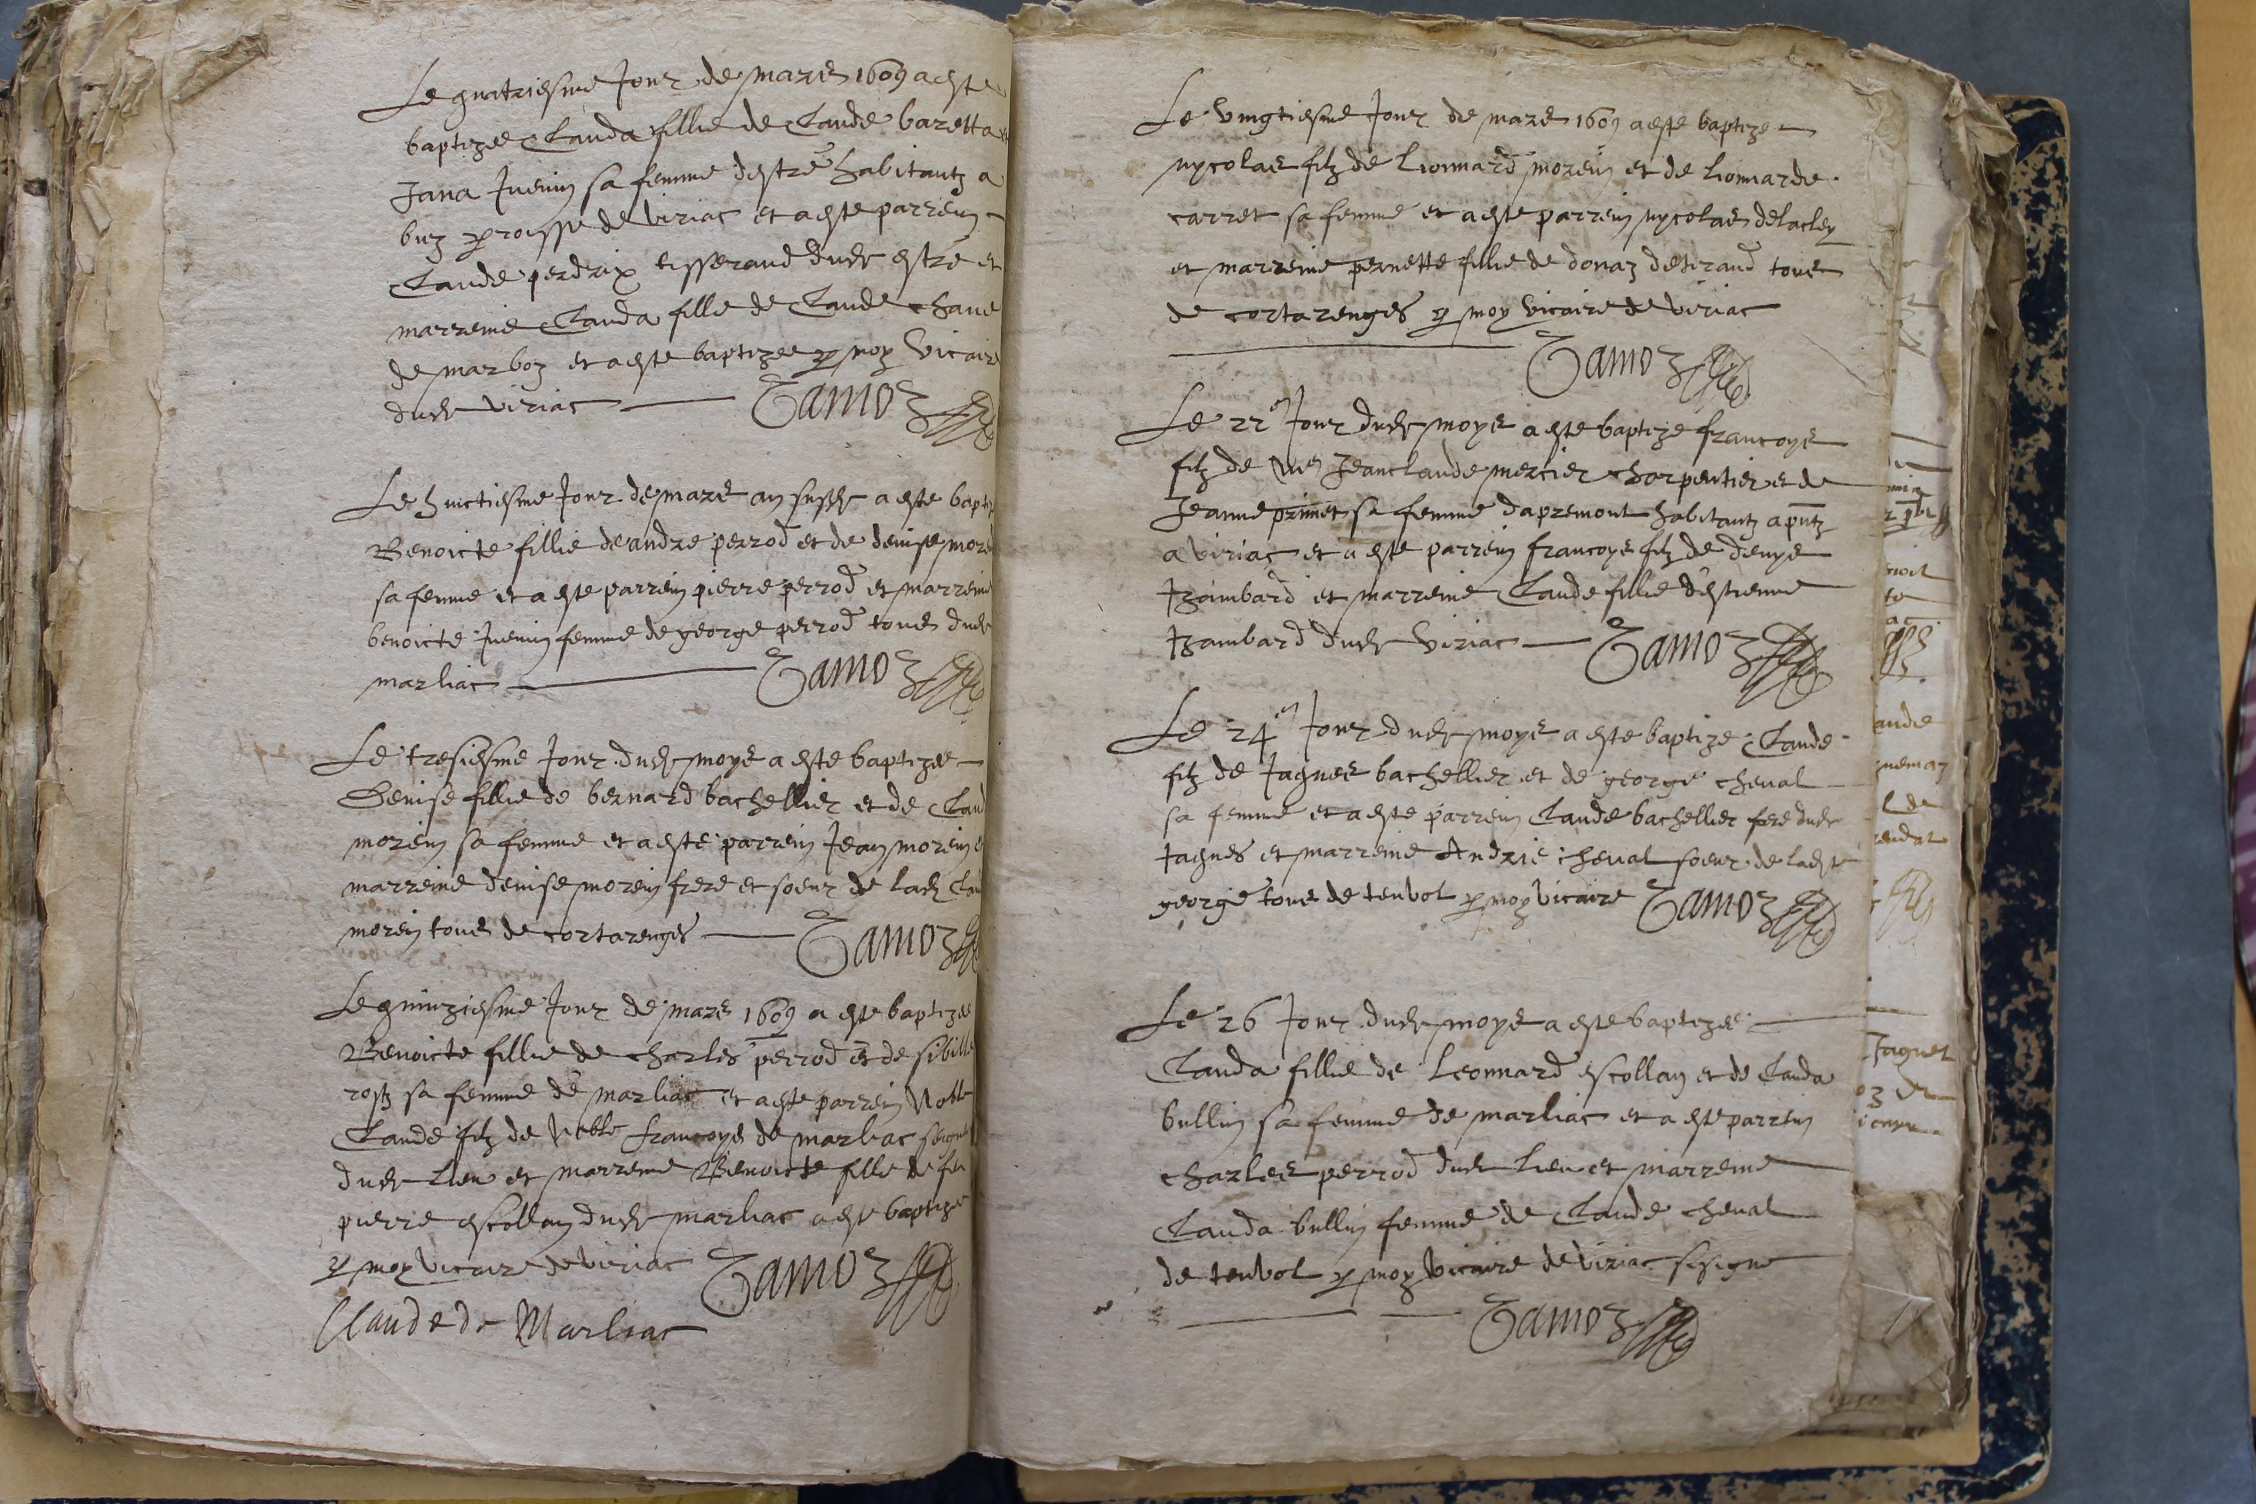 Le quatriesme Jour de mars 1609 a este
baptizee Clauda fillie de Claude baretta et
Jana Juenin sa femme destre habitantz a
buz parroisse de viriac et a este parrein
Claude perdrix tisserand dudt estre et
marreine Clauda fille de Claude chane
de marboz et a este baptizee p moy vicaire
dudt viriac Tamoz
Le huictiesme Jour de mars an susdt a este baptize
Benoicte fillie de andre perrod et de denise morein
sa femme et a este parrein pierre perrod et marreine
benoicte Juenin femme de george perrod tous dudt
marliac Tamoz
Le tresiesme Jour dudt moys a este baptizee
Denise fillie de bernard bachellier et de Claud
morein sa femme et a este parrein Jean morein et
marreine denise morein frere et soeur de ladt Clau
morein tous de cortarenges Tamoz
Le quinziesme Jour de mars 1609 a este baptizee
Benoicte fillie de charles perrod et de sibille
sa femme de marliac et a este parrein Noble
Claude filz de Noble francoys de marliac seigneur
dudt Lieu et marreine Benoicte fille de feu
pierre escollan dudt marliac a este baptizee
p moy vicaire de viriac Tamoz
Claude de Marliac
Le vingtiesme Jour de mars 1609 a este baptize
nycolas filz de Lionnard morein et de Lionnarde
carret sa femme et a este parrein nycolas delacley
et marreine pernette fillie de donaz detirand tous
de cortarenges p moy vicaire de viriac
Tamoz
Le 22e Jour dudt moys a este baptize francoys
filz de Me Jeanclaude mercier charpentier et de
Jeanne primet sa femme dapremont habitantz a pntz
a viriac et a este parrein francoys filz de denys
Jzambard et marreine Claude fillie destienne
Jzambard dudt viriac Tamoz
Le 24e Jour dudt moys a este baptize Claude
filz de Jaques bachellier et de george cheval
sa femme et a este parrein Claude bachellier frere dudt
Jaques et marreine Andrie cheval soeur de ladte
george tous de tenvol p moy vicaire Tamoz
Le 26 Jour dudt moys a este baptizee
Clauda fillie de Leonnard escollan et de Clauda
bullin sa femme de marliac et a este parrein
charles perrod dudt Lieu et marreine
Clauda bullin femme de Claude cheval
de tenvol p moy vicaire de viriac sisigne
Tamoz